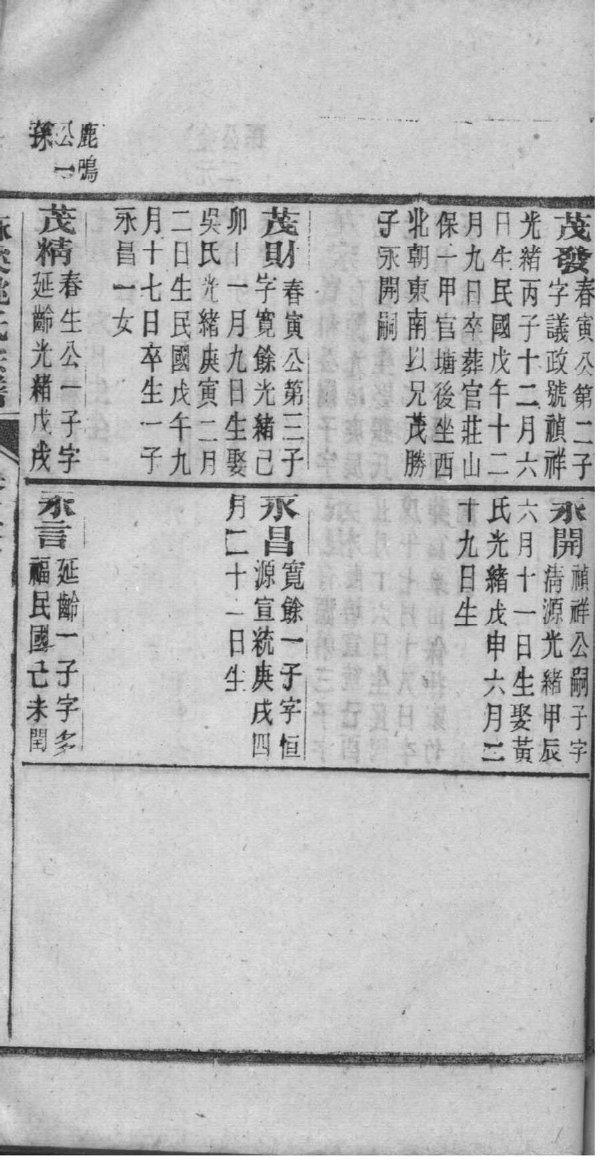 茂發春寅公第二子
字議政號禎祥
光緒丙子十二月六
日生民國戊午十二
月九日卒葬官莊山
保一甲官塘後坐西
北朝東南以兄茂勝
子永開嗣
茂財春寅公第三子
字寬餘光緒己
卯十一月九日生娶
吳氏光緒庚寅二月
二日生民國戊午九
月十七日卒生一子
永昌一女
鹿鳴
公一
孫
茂精春生公一子字
延齡光緒戊戌
永開禎祥公嗣子字
清源光緒甲辰
六月十一日生娶黃
氏光緒戊申六月二
十九日生
永昌寬餘一子字恒
源宣統庚戌四
月二十一日生
永言延齡一子字多
福民國己未閏